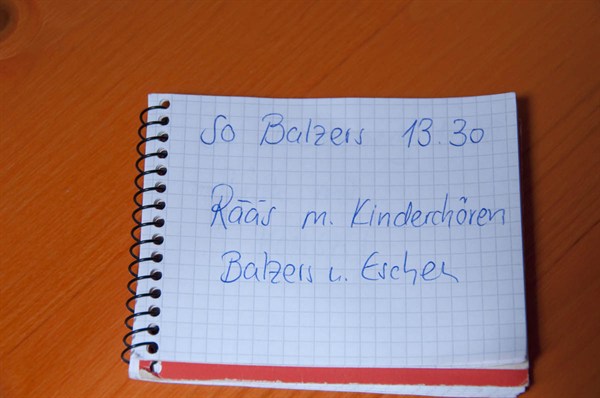 So Balzers 13.30
Rääs m. Kinderchören
Balzers u. Eschen